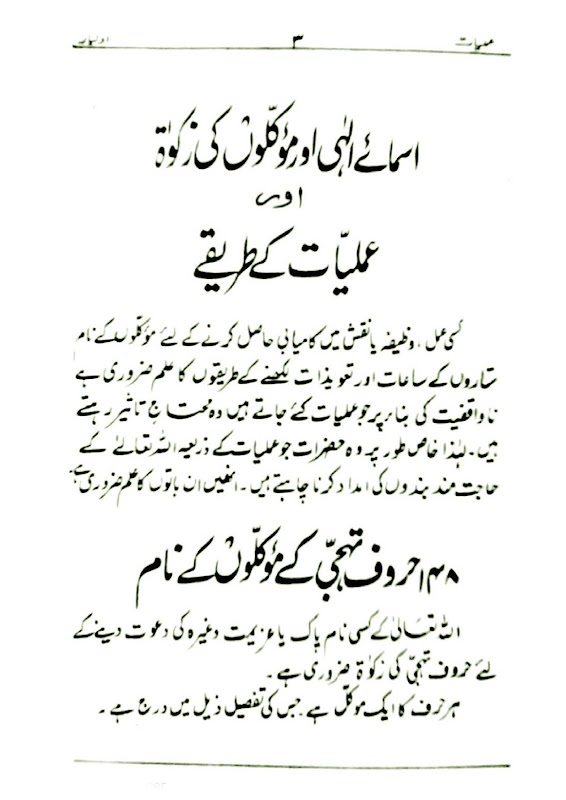 عملیات ۳ اولیاء
اسمائے الٰہی اور مؤکلوں کی زکوٰۃ
اور
عملیّات کے طریقے
کسی عمل، وظیفہ یا نقش میں کامیابی حاصل کرنے کے لئے مؤکلوں کے نام
ستاروں کے ساعات اور تعویذات لکھنے کے طریقوں کا علم ضروری ہے
ناواقفیت کی بناء پر جو عملیات کئے جاتے ہیں وہ محتاجِ تاثیر رہتے
ہیں۔ لہٰذا خاص طور پر وہ حضرات جو عملیات کے ذریعہ اللہ تعالےٰ کے
حاجت مند بندوں کی امداد کرنا چاہتے ہیں۔ انھیں ان باتوں کا علم ضروری ہے۔
حروف تہجّی کے مؤکلّوں کے نام
اللہ تعالیٰ کے کسی نام پاک یا عزیمت وغیرہ کی دعوت دینے کے
لئے حروف تہجّی کی زکوٰۃ ضروری ہے۔
ہر حرف کا ایک موکّل ہے جس کی تفصیل ذیل میں درج ہے۔